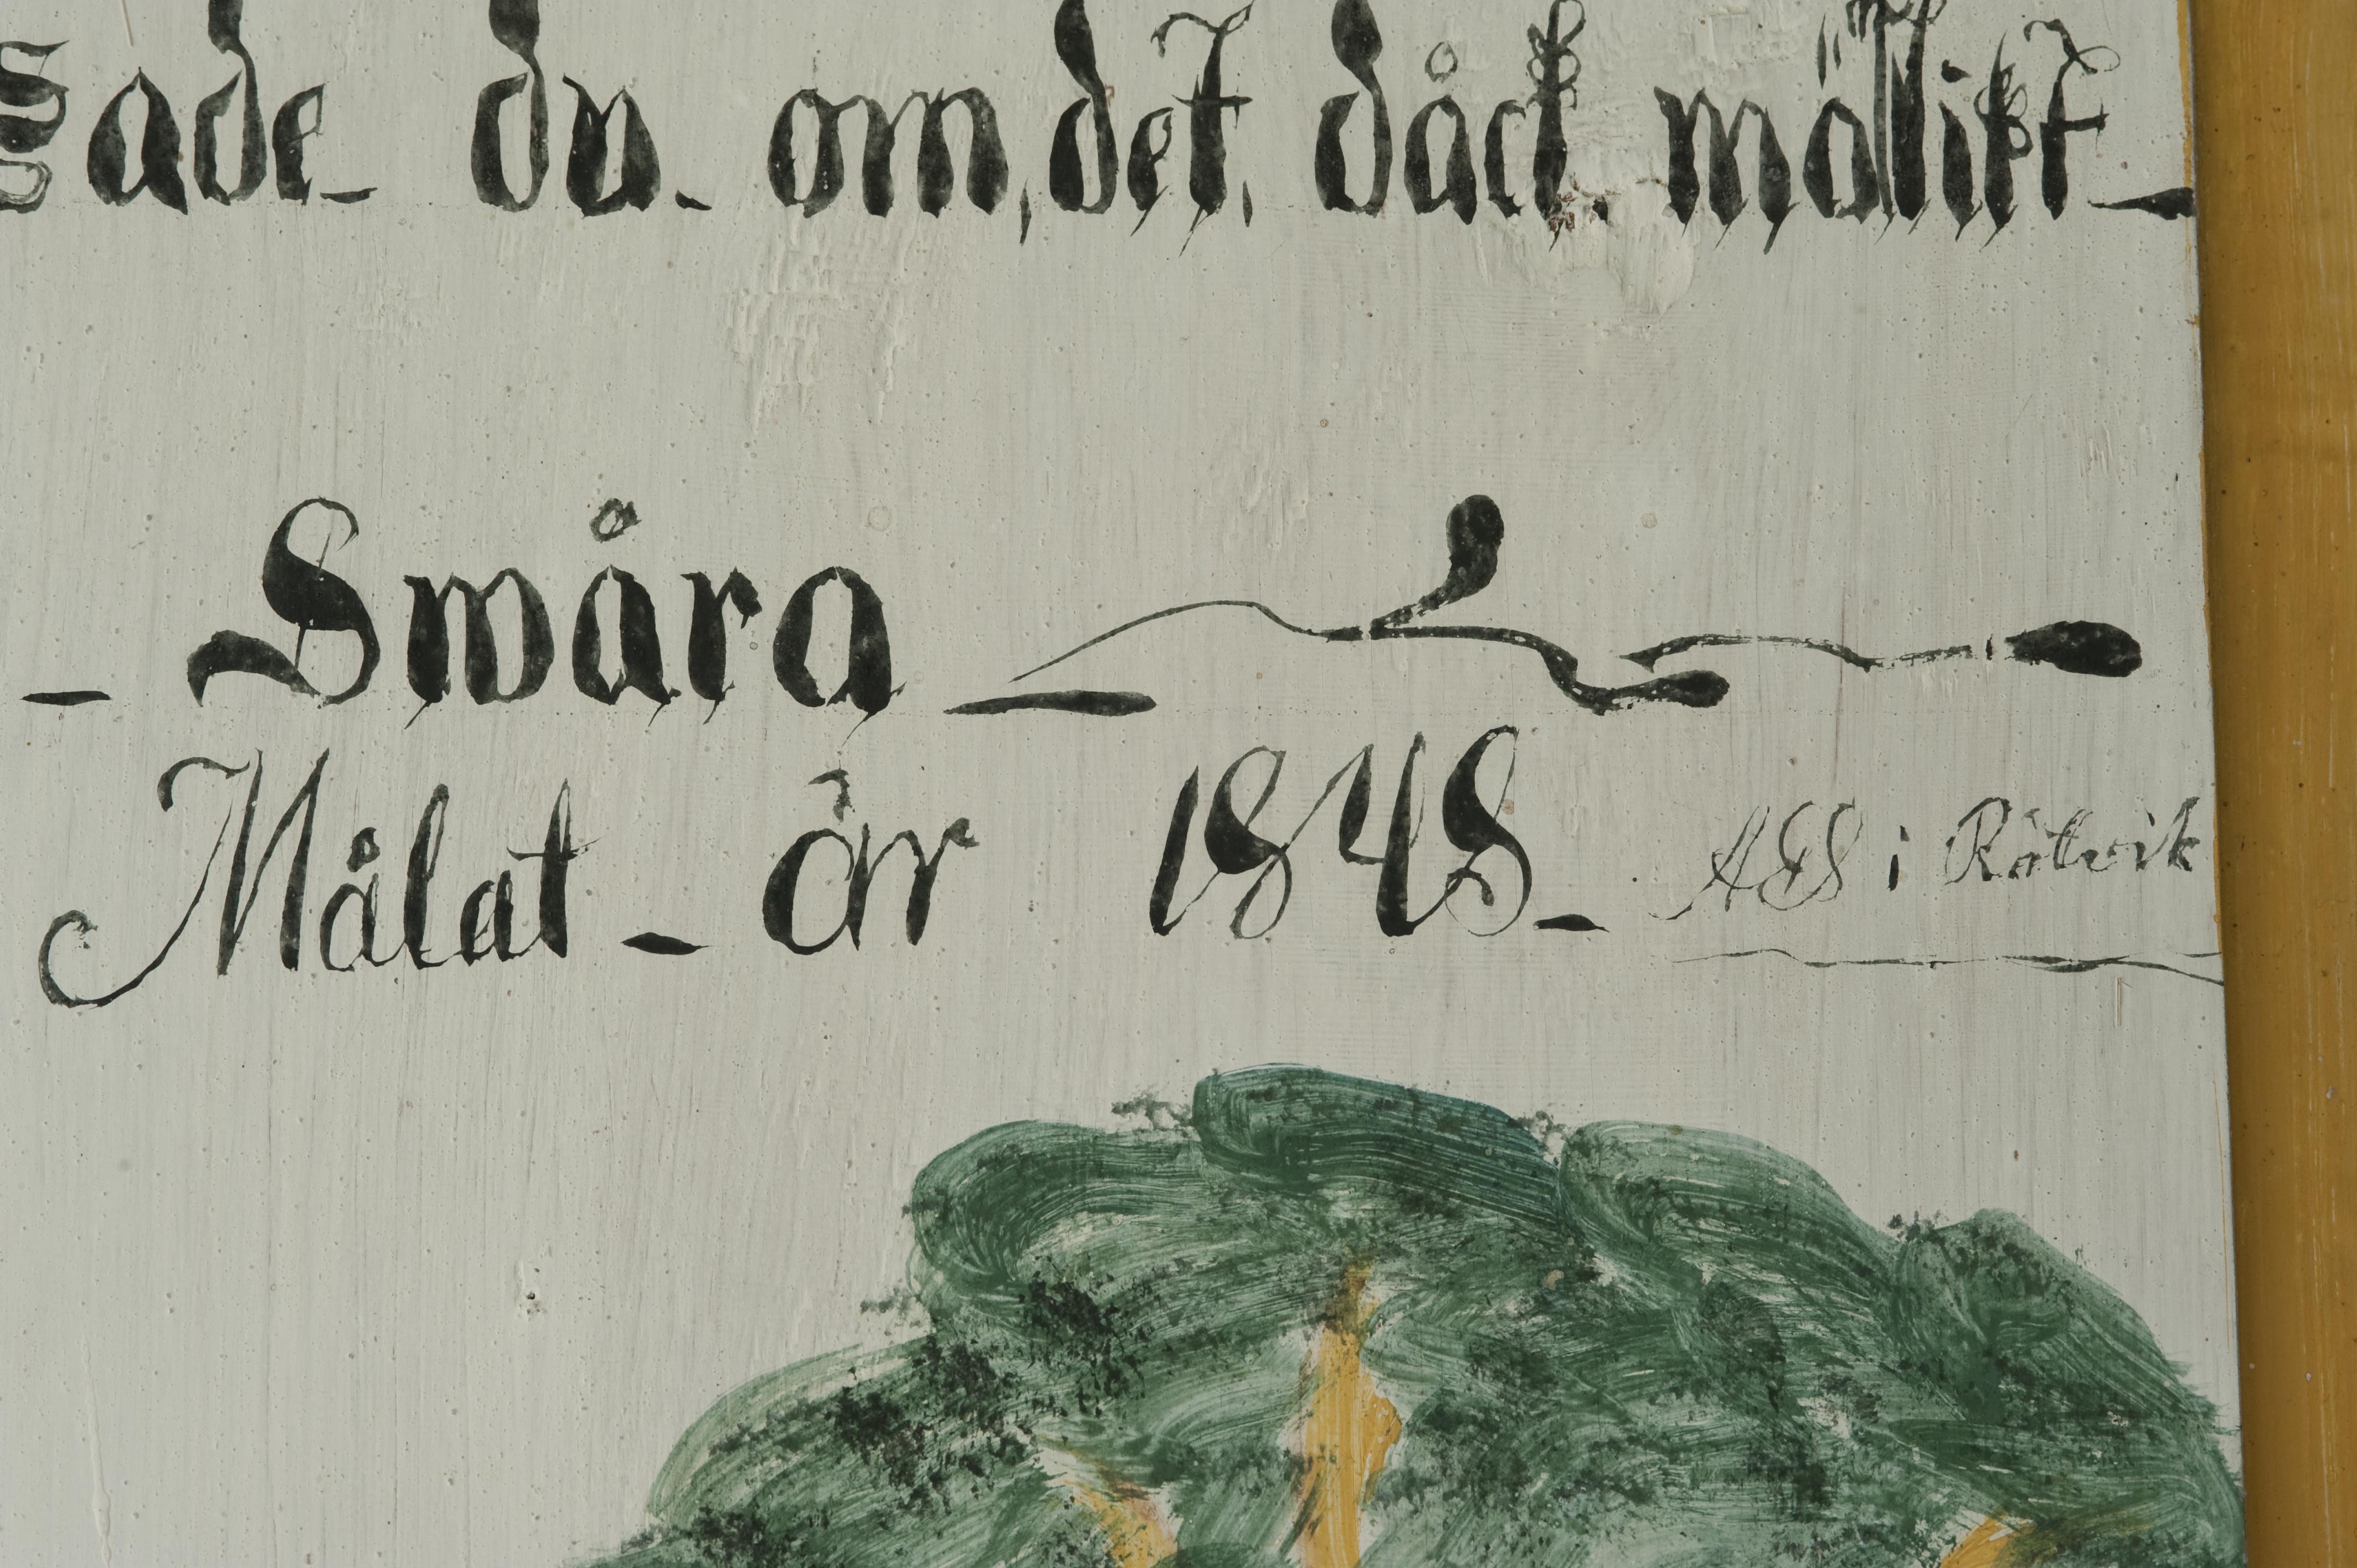 sade du. om, det, dåck. möllikt
Swåra
Målat år 1848 AES i Rätwik